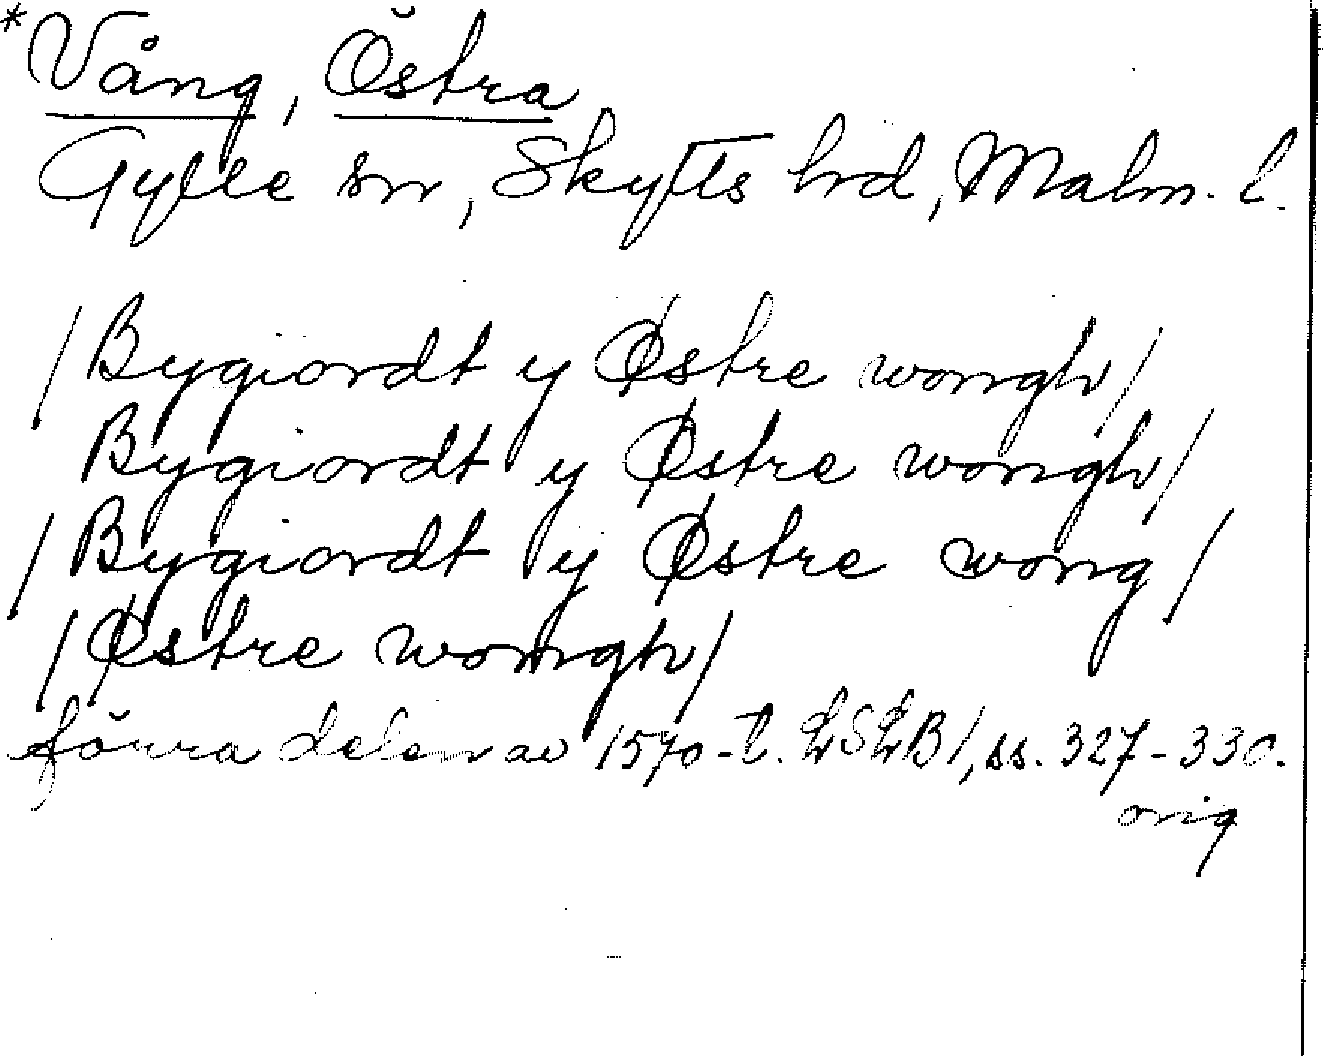 *Vång, Östra
Gylle sn, Skytts hrd, Malm. l.
/Bygiordt y Østre wongh/
Bygiordt y Østre wongh/
/Bygiordt y Østre wong/
/Østre wongh/
förra delen av 1570-t. LSLB1, ss. 327-330.
orig